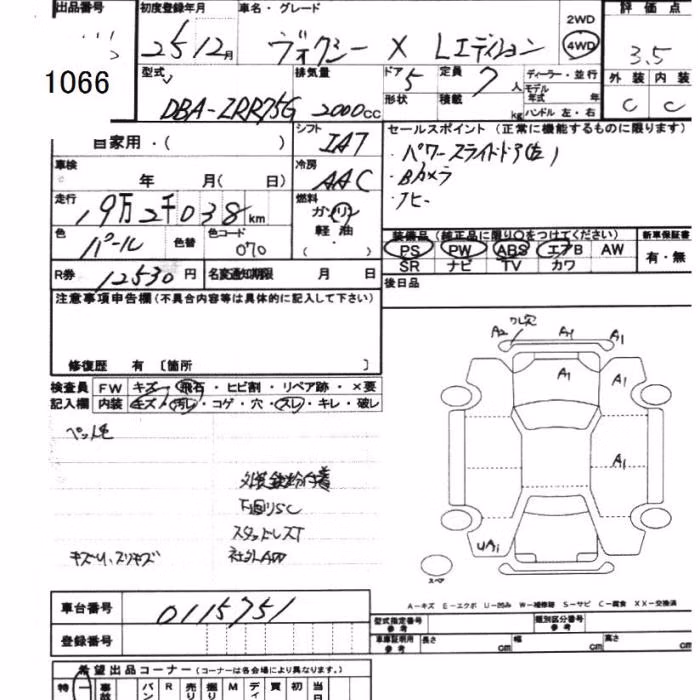 出品番号
1066
初度登録年月
25 12月
車名・グレード
ヴォクシー X Lエディション
2WD
4WD
評価点
3.5
型式
DBA-ZRR75G
排気量
2000cc
ドア
5
形状
定員
7人
積載
kg
ディーラー・並行
モデル年式 年
ハンドル 左・右
外装 内装
C C
自家用・( )
シフト
IAT
セールスポイント (正常に機能するものに限ります)
・パワースライドドア(左)
・Bカメラ
・ナビ
車検
年 月( 日)
冷房
AAC
走行
19万2千038km
燃料
ガソリン
軽油
( )
色
パール
色替
色コード
070
装備品 (純正品に限り〇をつけてください)
PS PW ABS エアB AW
SR ナビ TV カワ
新車保証書
有・無
R券 12530円
名変通知期限 月 日
後日品
注意事項申告欄(不具合内容等は具体的に記入して下さい)
修復歴 有 〔箇所 〕
検査員記入欄
FW キズ・飛石・ヒビ割・リペア跡・×要
内装 キズ・汚レ・コゲ・穴・スレ・キレ・破レ
外装鉄粉付着
下廻りSC
スタッドレスT
社外AW
キズU、スリキズ
A2 ワレ穴 A1 A1
A1 A1
A1
UA1
スペア
A-キズ E-エクボ U-凹み W-補修跡 S-サビ C-腐食 XX-交換済
車台番号
0115751
登録番号
型式指定番号 参考
類別区分番号 参考
車庫証明用 参考
長さ cm
幅 cm
高さ cm
希望出品コーナー (コーナーは各会場により異なります。)